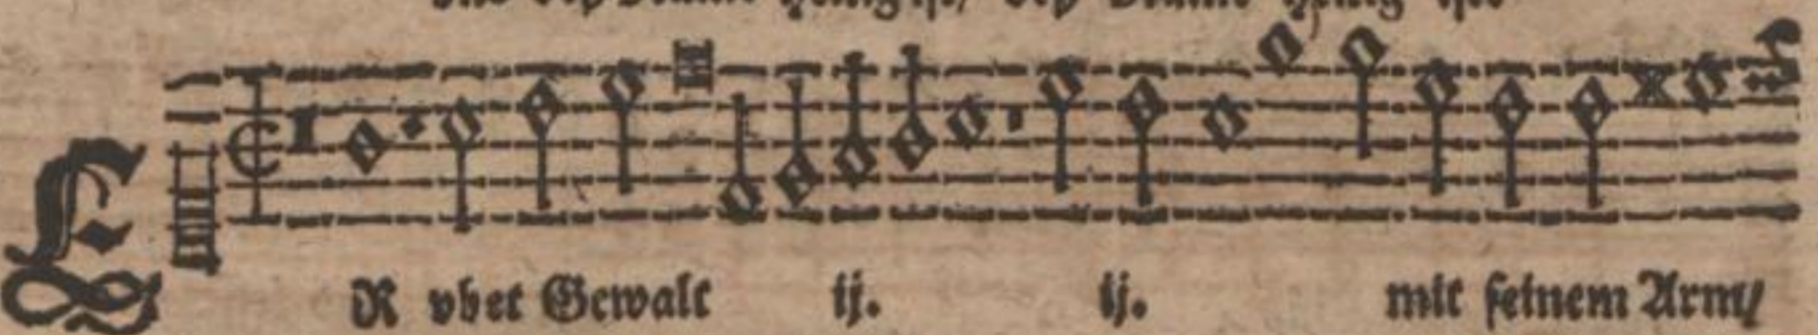 ER vbet Gewalt ij. ij. mit seinem Arm/